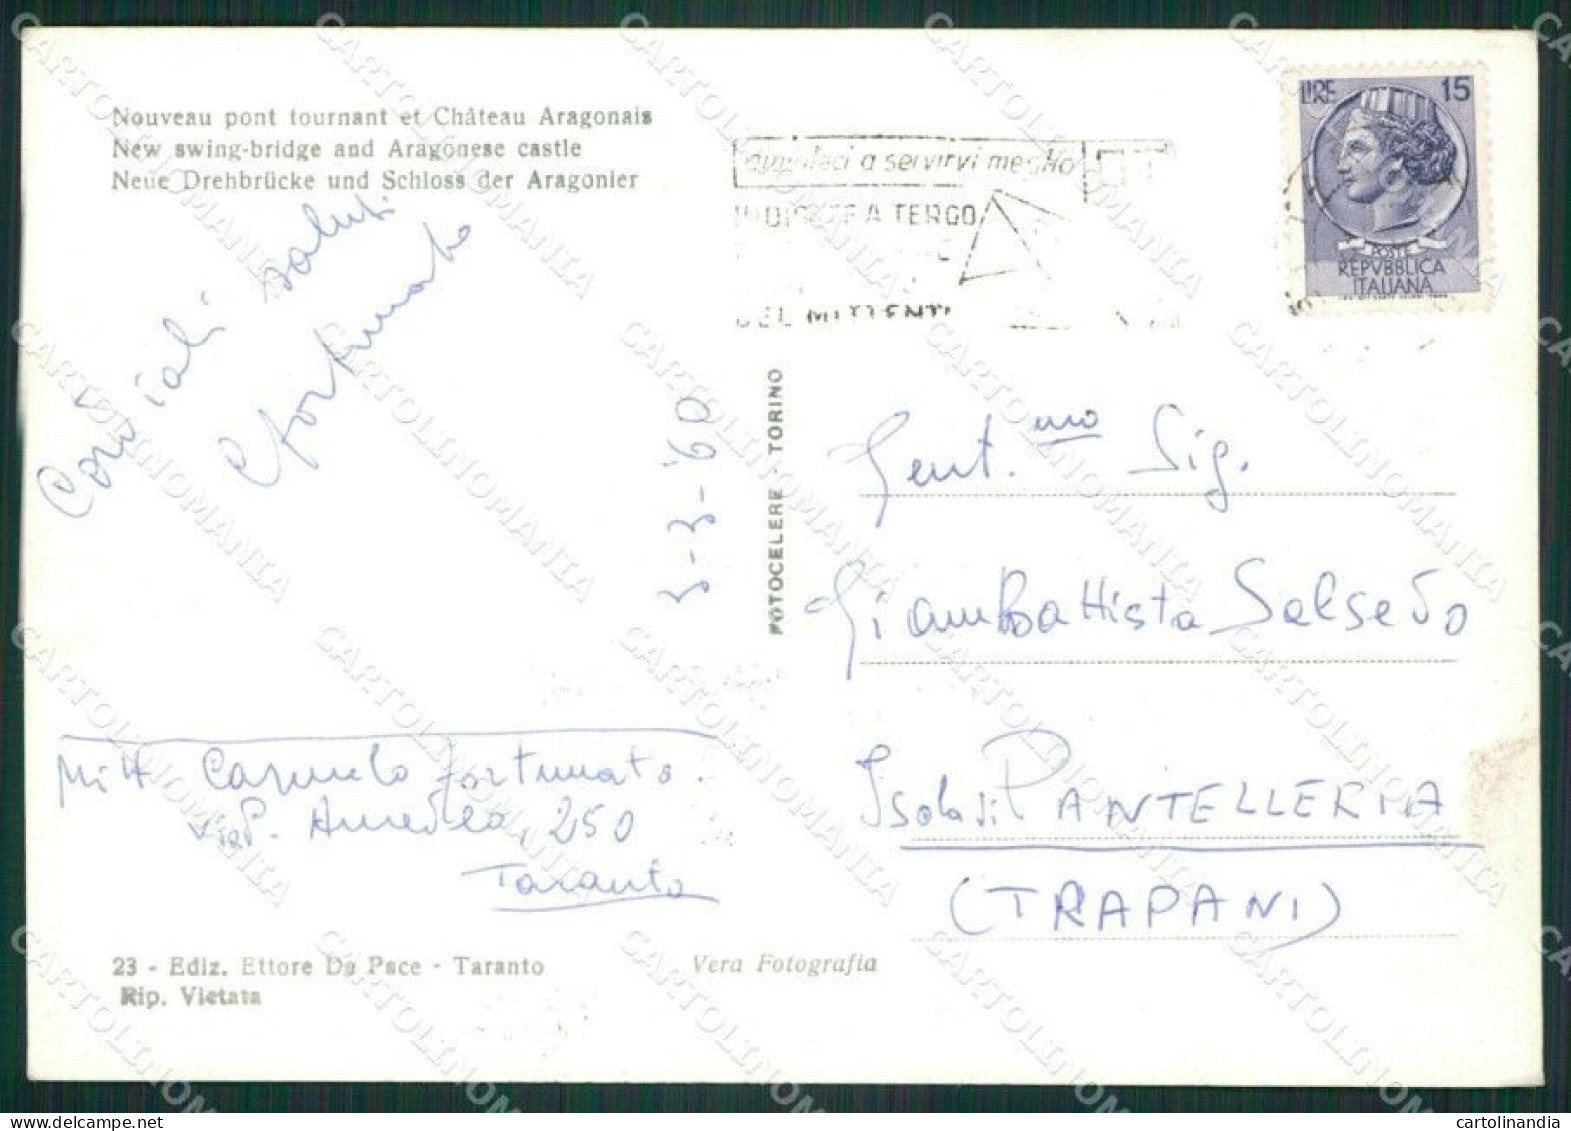 Nouveau pont tournant et Château Aragonais
New swing-bridge and Aragonese castle
Neue Drehbrücke und Schloss der Aragonier
Cordiali saluti
Cfortunato
3-3-'60
FOTOCELERE - TORINO
a servirvi meglio
A TERGO
DEL MITTENTE
LIRE 15
POSTE
REPVBBLICA
ITALIANA
Gent.mo Sig.
GiamBattista Salsedo
Isola di PANTELLERIA
(TRAPANI)
Mitt Carmelo fortunato.
V. P. Amedeo, 250
Taranto
23 - Ediz. Ettore De Pace - Taranto
Rip. Vietata
Vera Fotografia
CARTOLINOMANIA
cartolinandia